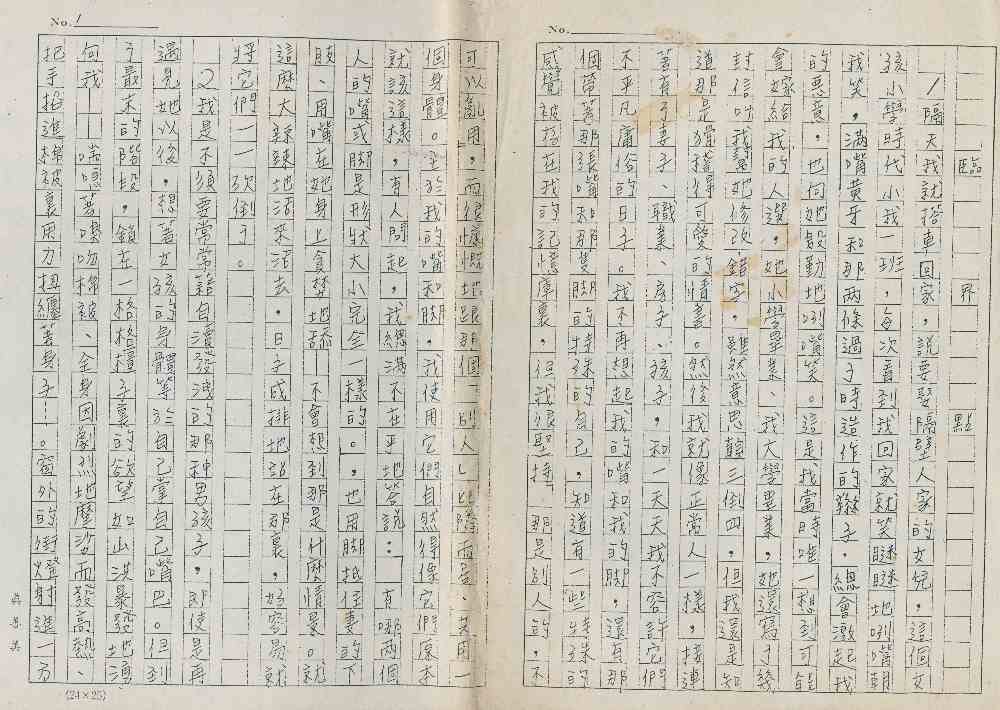 No.
臨界點
1隔天我就搭車回家,說要娶隔壁人家的女兒,這個女
孩小學時代小我一班,每次看到我回家就笑瞇瞇地咧嘴朝
我笑,滿嘴黃牙和那兩條過于時造作的辮子,總會激起我
的惡意。也何她殷勤地咧嘴笑。這是我當時唯一想到可能
會嫁給我的人選,她小學畢業、我大學畢業,她還寫了幾
封信叫我幫她修改錯字,雖然意思顛三倒四,但我還是知
道那是獲得可愛的情書。然後我就像正常人一樣,接連
著有了妻子、職業、房子、孩子,和一天天我不容許它們
不平凡庸俗的日子。我不再想起我的嘴和我的腳,還有
個帶著那張嘴和那雙腳的特殊的自己,知道有一些特殊的
感覺被括在我的記憶庫裏,但我很堅持 那是別人的,不
No. 1
可以亂用,而很慷慨地跟那個「別人」 共用一
個身體。至於我的嘴和腳,我使用它們自然得像它們原本
就該這樣,有人問起,我總滿不在乎地答說: 有哪兩個
人的嘴或腳是形狀大小完全一樣的。,也用腳抵住妻的下
肢、用嘴在她身上貪婪地舔 不會想到那是什麼情景。就
這麼大辣辣地活來活去,日子成排地站在那裏,好容易就
將它們一一砍倒了。
2我是不須要常常藉自瀆發洩的那種男孩子,即使是再
遇見她以後,想著女孩的身體等於自己掌自己嘴巴。但到
了最末的階段,鎖在一格格檯子裏的欲望如山洪暴發地湧
向我——喘噓著嗅吻棉被、全身因劇烈地摩沙而發高熱、
把手招進棉被裏用力扭纏著身子……。窗外的街燈射進一方
(24×25)